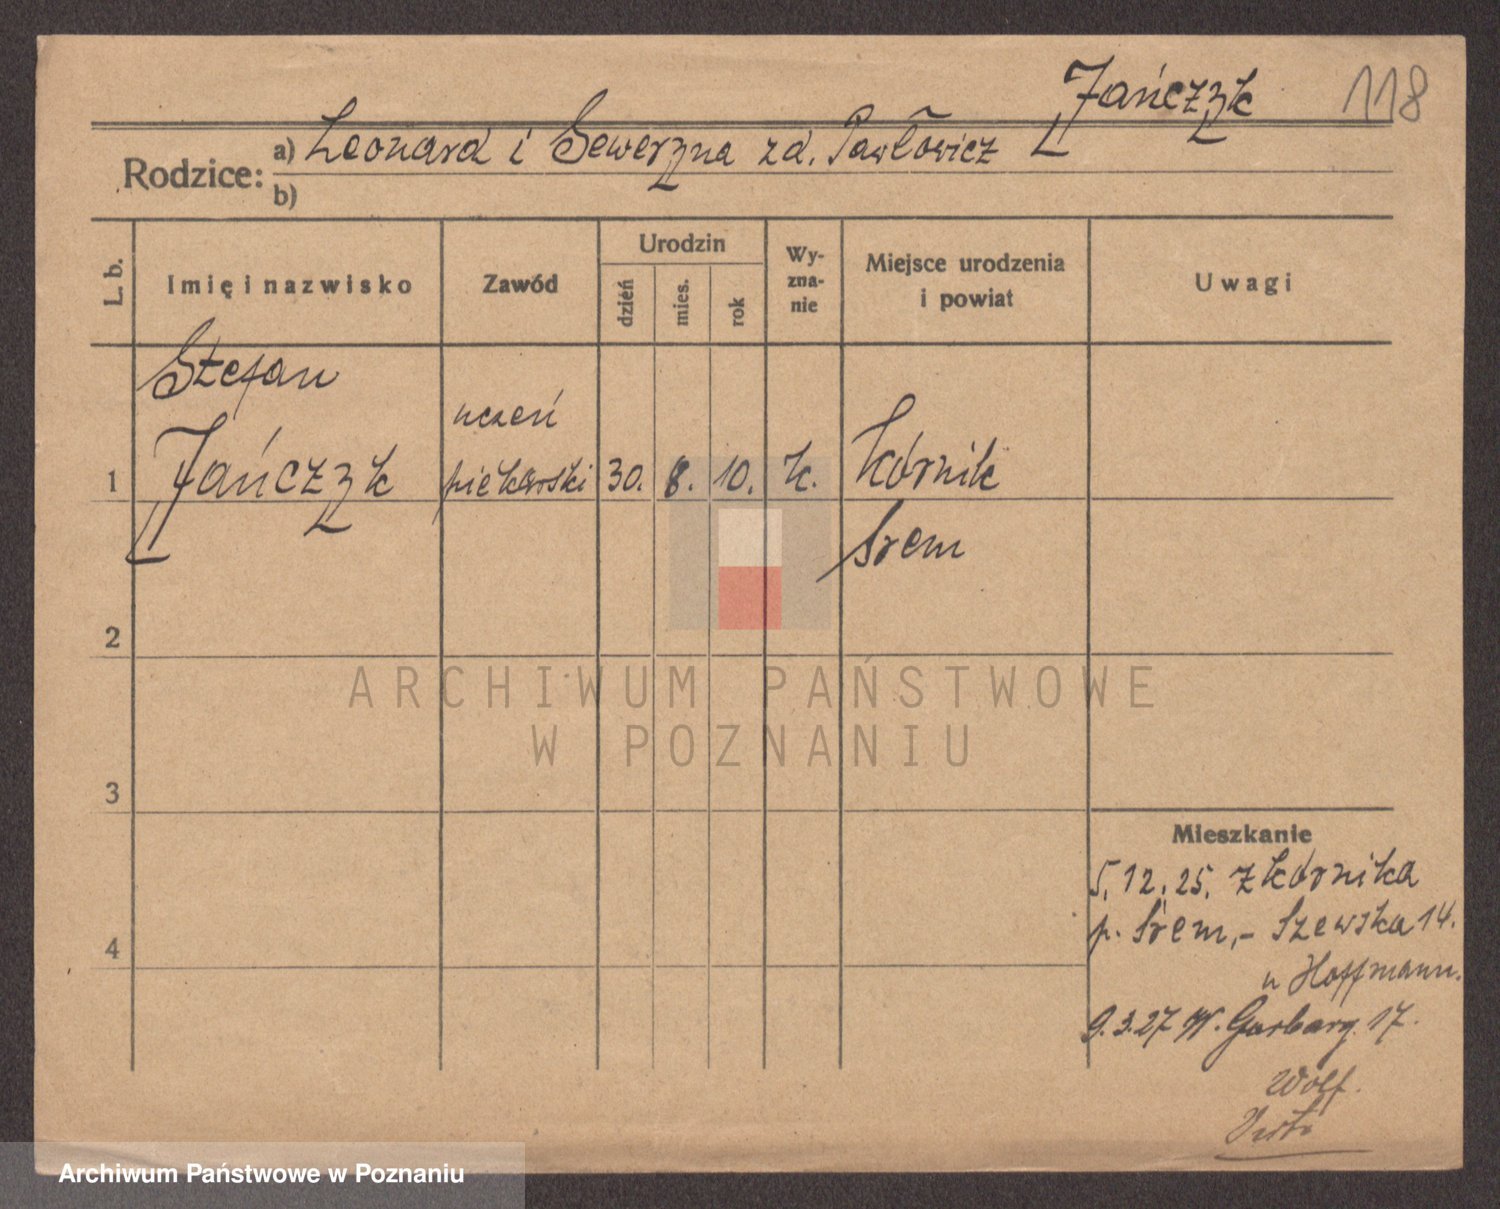 Jańczyk 118
Rodzice: a) Leonard i Seweryna zd. Pawłowicz
b)
L. b. Imię i nazwisko Zawód Urodzin dzień mies. rok Wyznanie Miejsce urodzenia i powiat Uwagi
Stefan
uczeń
1 Jańczyk piekarski 30. 8. 10. k. Kórnik
Śrem
2
ARCHIWUM PAŃSTWOWE
W POZNANIU
3
Mieszkanie
5.12.25. z Kórnika
p. Śrem,- Szewska 14.
4
u Hoffmann.
9.3.27 W. Garbary. 17.
Wolf.
Archiwum Państwowe w Poznaniu